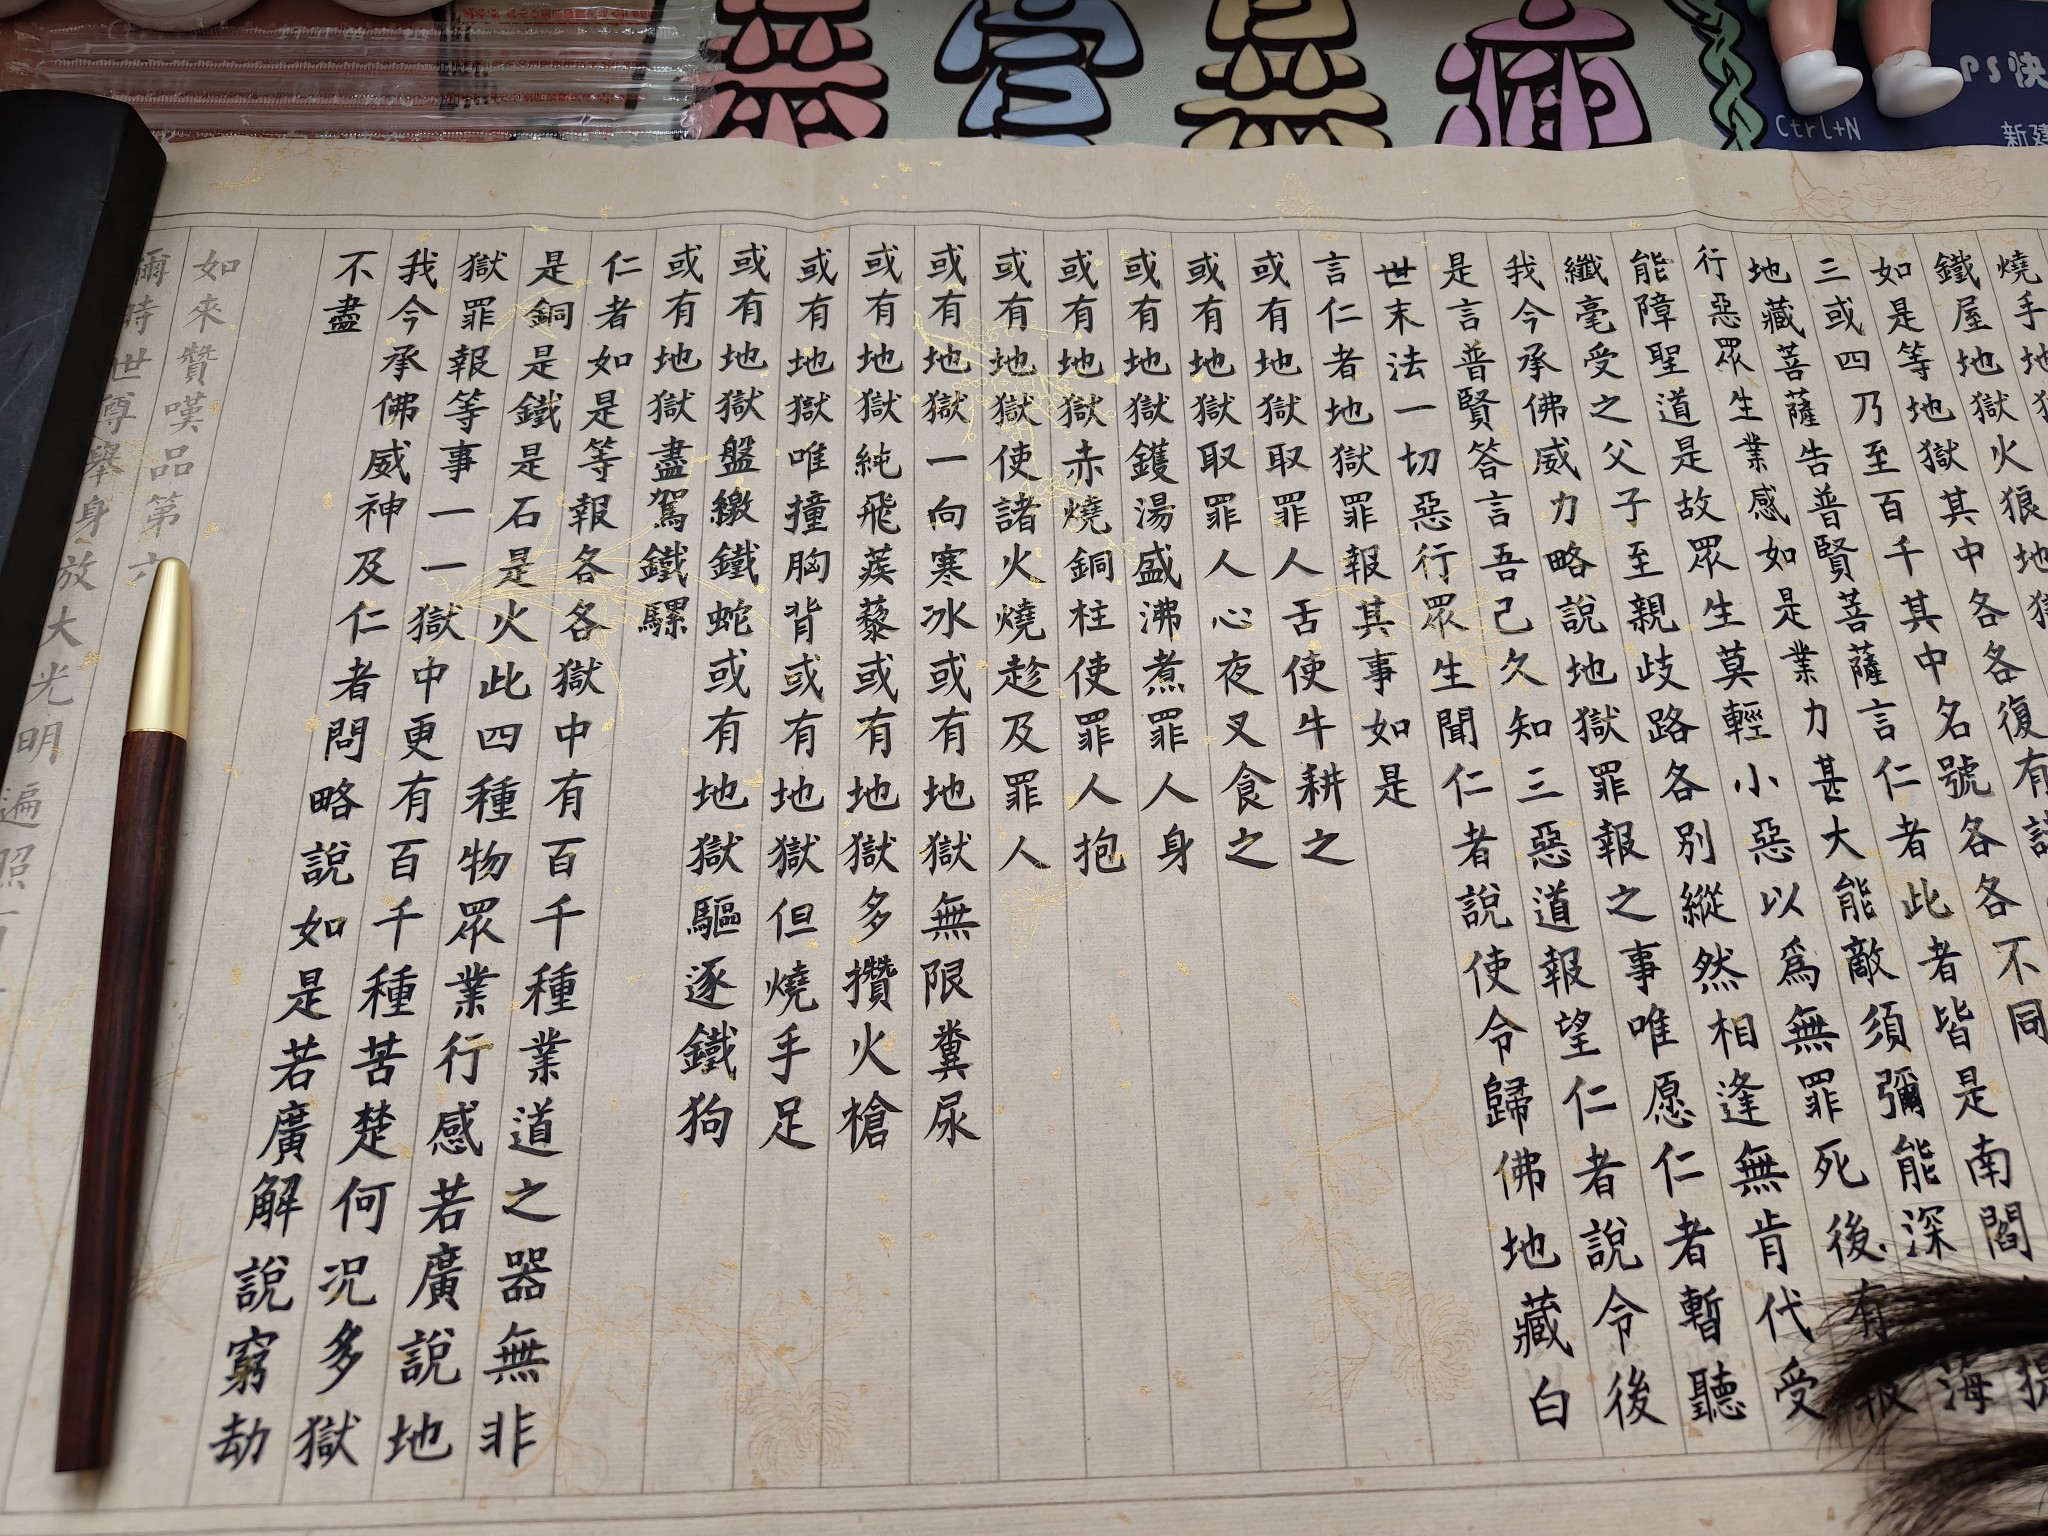 Ps快
Ctrl+N
新建
燒手地
鐵屋地獄火狼地獄
如是等地獄其中各各復有
三或四乃至百千其中名號各各不同
地藏菩薩告普賢菩薩言仁者此者皆是南閻提
行惡眾生業感如是業力甚大能敵須彌能深海
能障聖道是故眾生莫輕小惡以爲無罪死後有報
纖毫受之父子至親歧路各別縱然相逢無肯代受
我今承佛威力略說地獄罪報之事唯愿仁者暫聽
是言普賢答言吾已久知三惡道報望仁者說令後
世末法一切惡行眾生聞仁者說使令歸佛地藏白
言仁者地獄罪報其事如是
或有地獄取罪人舌使牛耕之
或有地獄取罪人心夜叉食之
或有地獄鑊湯盛沸煮罪人身
或有地獄赤燒銅柱使罪人抱
或有地獄使諸火燒趁及罪人
或有地獄一向寒冰或有地獄無限糞尿
或有地獄純飛蒺藜或有地獄多攢火槍
或有地獄唯撞胸背或有地獄但燒手足
或有地獄盤繳鐵蛇或有地獄驅逐鐵狗
或有地獄盡駕鐵騾
仁者如是等報各各獄中有百千種業道之器無非
是銅是鐵是石是火此四種物眾業行感若廣說地
獄罪報等事一一獄中更有百千種苦楚何況多獄
我今承佛威神及仁者問略說如是若廣解說窮劫
不盡
如來贊嘆品第六
爾時世尊舉身放大光明遍照